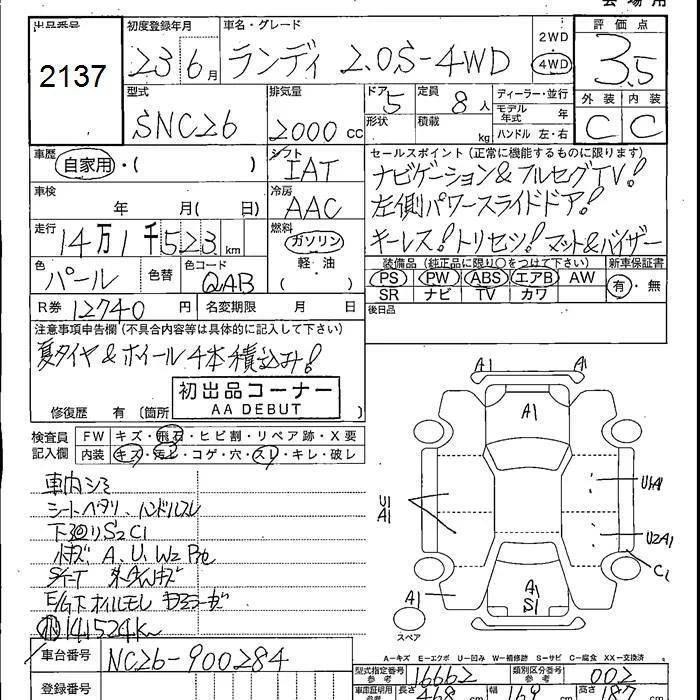 出品番号
2137
初度登録年月
23 6月
車名・グレード
ランディ 2.0S-4WD
2WD
4WD
評価点
3.5
外装 内装
C C
型式
SNC26
排気量
2000cc
ドア
5
形状
定員
8人
積載
kg
ディーラー・並行
モデル年式 年
ハンドル 左・右
車歴
自家用・( )
シフト
IAT
セールスポイント(正常に機能するものに限ります)
ナビゲーション&フルセグTV!
左側パワースライドドア!
キーレス!トリセツ!マット&バイザー
車検
年 月( 日)
冷房
AAC
走行
14万1千523km
燃料
ガソリン
軽・油
( )
色
パール
色替
色コード
QAB
装備品(純正品に限り○をつけて下さい)
PS PW ABS エアB AW
SR ナビ TV カワ
新車保証書
有・無
R券 12740円
名変期限 月 日
後日品
注意事項申告欄(不具合内容等は具体的に記入して下さい)
夏タイヤ&ホイール4本積込み!
初出品コーナー
AA DEBUT
修復歴 有(箇所
検査員記入欄
FW キズ・飛石・ヒビ割・リペア跡・X要
内装 キズ・汚レ・コゲ・穴・スレ・キレ・破レ
車内シミ
シートヘタリ、ハンドルスレ
下廻りS2C1
小キズ、A、U、W2
E/G下オイルモレ
141524K
車台番号
NC26-900284
登録番号
A1
A1
A1
U1
A1
U1A1
U2A1
C1
A1
A1
S1
スペア
A－キズ E－エクボ U－凹み W－補修跡 S－サビ C－腐食 XX－交換済
型式指定番号 参考
16662
類別区分番号 参考
002
長さ
468
cm
幅
169
高さ
187
cm